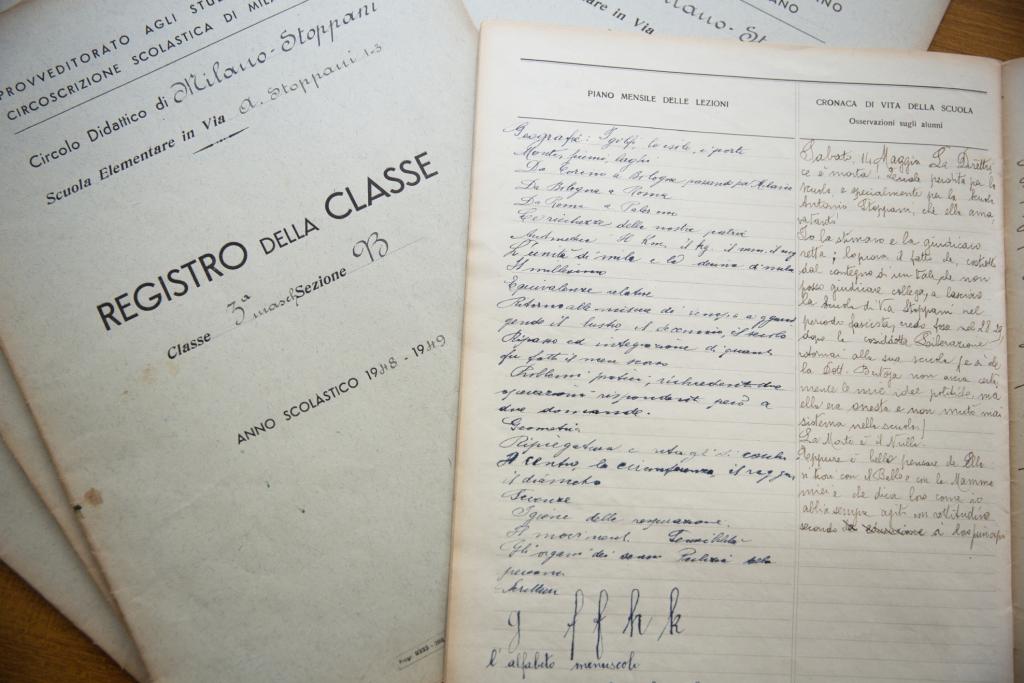 PROVVEDITORATO AGLI STU
CIRCOSCRIZIONE SCOLASTICA DI MILA
Circolo Didattico di Milano-Stoppani
Scuola Elementare in Via A. Stoppani 1-3
REGISTRO DELLA CLASSE
Classe 3ª masch Sezione B
ANNO SCOLASTICO 1948-1949
ementare in Via
PIANO MENSILE DELLE LEZIONI
Geografia: I golfi, le isole, i porti
Monti, fiumi, laghi
Da Torino a Bologna passando per Milano
Da Bologna a Roma
Da Roma a Palermo
Le ricchezze della nostra patria
Aritmetica Il Km. il Kg. il mm. il mg
L'unità di mila e la decina di mila
Il millesimo
Equivalenze relative
Ritorno alle misure di tempo e aggiun
gendo il lustro, il decennio, il secolo
Ripasso ed integrazione di quanto
fu fatto il mese scorso
Problemi pratici, richiedenti due
operazioni rispondenti però a
due domande.
Geometria
Ripiegatura e
Il centro, la circonferenza, il raggio,
il diametro
Scienze
Igiene della respirazione.
Il movimento. Sensibilità
Gli organi dei sensi Pulizia della
persona.
Scrittura
g f f h k
l'alfabeto minuscolo
CRONACA DI VITA DELLA SCUOLA
Osservazioni sugli alunni
Sabato, 14 Maggio La Diretti
ce è morta. perdita per la
scuola e specialmente per la scuola
Antonio Stoppani, che ella ama
va tanto!
Io la stimavo e la giudicavo
retta; lo prova il fatto che, costretta
dal contegno di un tale che non
posso giudicare collega, a lasciare
la Scuola di Via Stoppani nel
periodo fascista, credo fosse nel 28-29
dopo la cosiddetta Liberazione
ritornai alla sua scuola
la Dott. non aveva certa
mente le mie idee politiche, ma
ella era onesta e non mutò mai
sistema nella scuola!
La Morte è il Nulla.
Eppure è bello pensare che Ella
si trovi con il Babbo e con la Mamma
miei e che dica loro come io
abbia sempre agito con rettitudine
secondo i loro principi